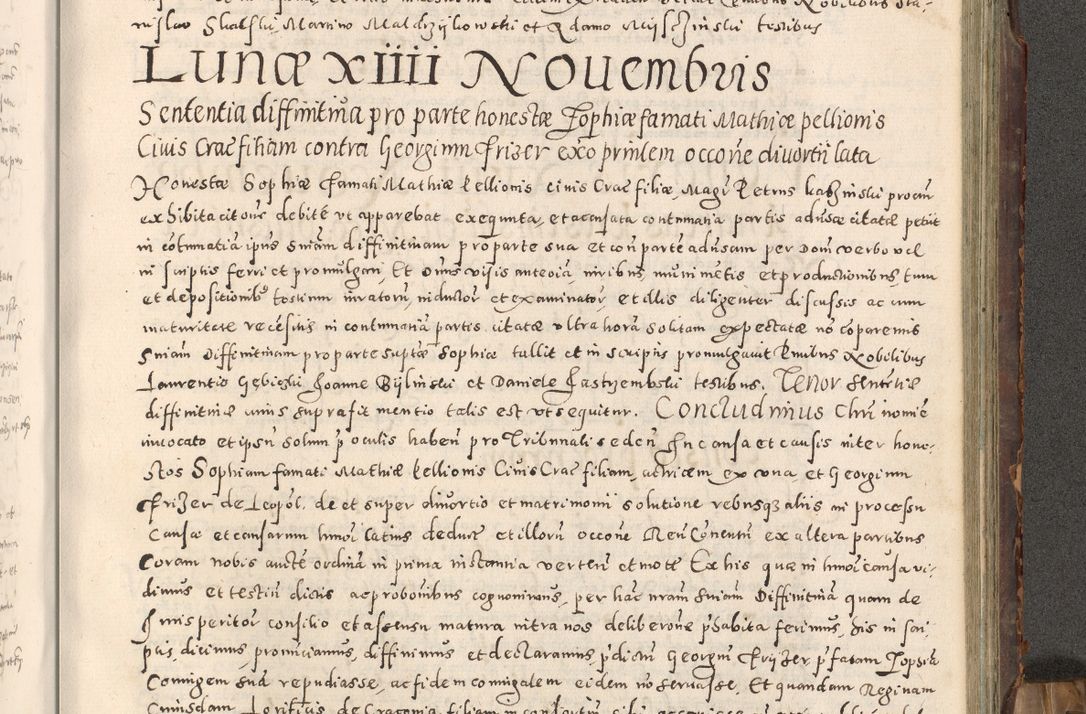 nislao Skalski Martino Maldrzijkowski et Adamo Mijsczinski testibus
Lunæ xiiii Nouembris
Sententia diffinitiua pro parte honestæ Zophiæ famati Mathiæ pellionis
Ciuis Crac filiam contra Georgium frizer ex co prinlem occone diuortii lata
Honestæ Sophiæ famati Mathiæ Pellionis ciuis Crac filiæ, Magr Petrus procur
exhibita citone debite vt apparebat exequuta, et accusata contumatia partis aduersæ citatæ petiit
in cotumatia ipius sniam diffinitiuam pro parte sua et con parte aduersam per Dom verbo vel
in scriptis ferri et promulgari, Et oms visis anteoia iuribus munimetis et productionibus, tum
et depositionib testium iuratorum inductor et examinator, et illis diligenter discussis ac cum
maturitate recesitis in contumatia partis citatæ vltra hora solitam expectatæ no coparentis
Sniam Diffinitiuam pro parte suptæ Sophiæ tullit et in scriptis promulgauit Pntibus Nobilibus
Laurentio Gębiczki Joanne Bijlinski et Daniele Jastrzembski testibus. Tenor sententiæ
diffinitiuæ cuius supra fit mentio talis est vt sequitur. Concludimus Chri nomine
inuocato et ipsu solum p oculis haben pro Tribunali seden In causa et causis inter hone-
stos Sophiam famati Mathiæ Pellionis Ciuis Crac filiam, actricem ex vna et Georgium
Frizer de Leopol. de et super diuortio et matrimonii solutione rebusq aliis in processu
Causæ et causarum hmoi latius deduct et illorum occone Reu Conentu ex altera partibus
Coram nobis aucte ordina in prima instantia verten et mote Ex his quæ in hmoi causa vi-
dimus et testiu dictis ac probonibus cognouimus, per hac nram sniam Diffinitiua quam de
Juris peritor consilio et assensu matura intra nos deliberone phabita ferimus, his in scri
ptis, dicimus, pronuciamus, diffinimus et declaramus pdictu Georgiu Frijzer pfatam Zophia
Coniugem suã repudiasse, ac fidem coniugalem eidem no seruasse, Et quandam Reginam